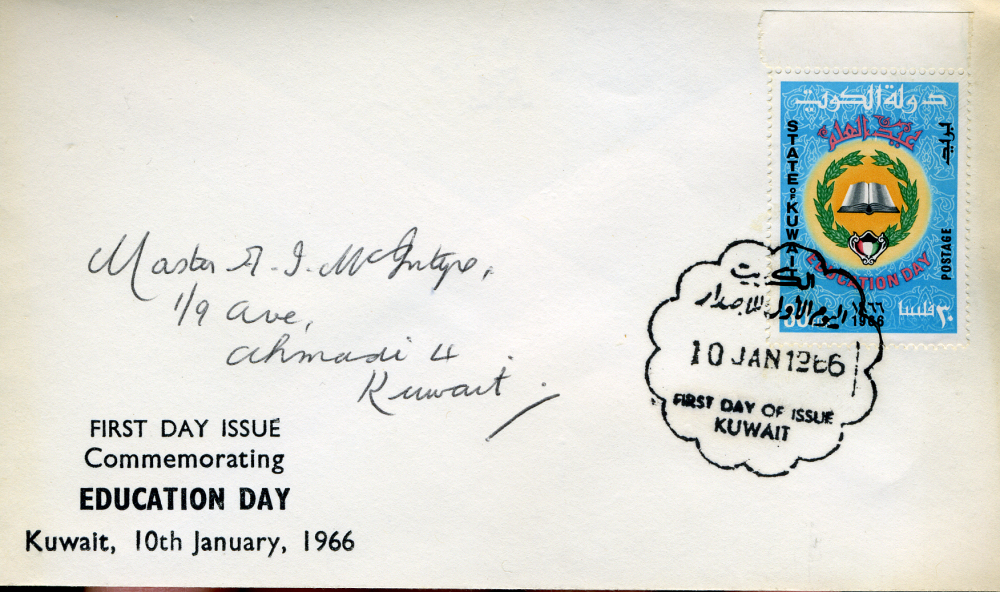 دولة الكويت
عيد العلم
STATE OF KUWAIT
بريد
POSTAGE
EDUCATION DAY
١٩٦٦
1966
٣٠ فلسا
الكويت
اليوم الأول للاصدار
10 JAN 1966
FIRST DAY OF ISSUE
KUWAIT
Master A. I. McIntyre,
1/9 Ave,
Ahmadi 4
Kuwait.
FIRST DAY ISSUE
Commemorating
EDUCATION DAY
Kuwait, 10th January, 1966